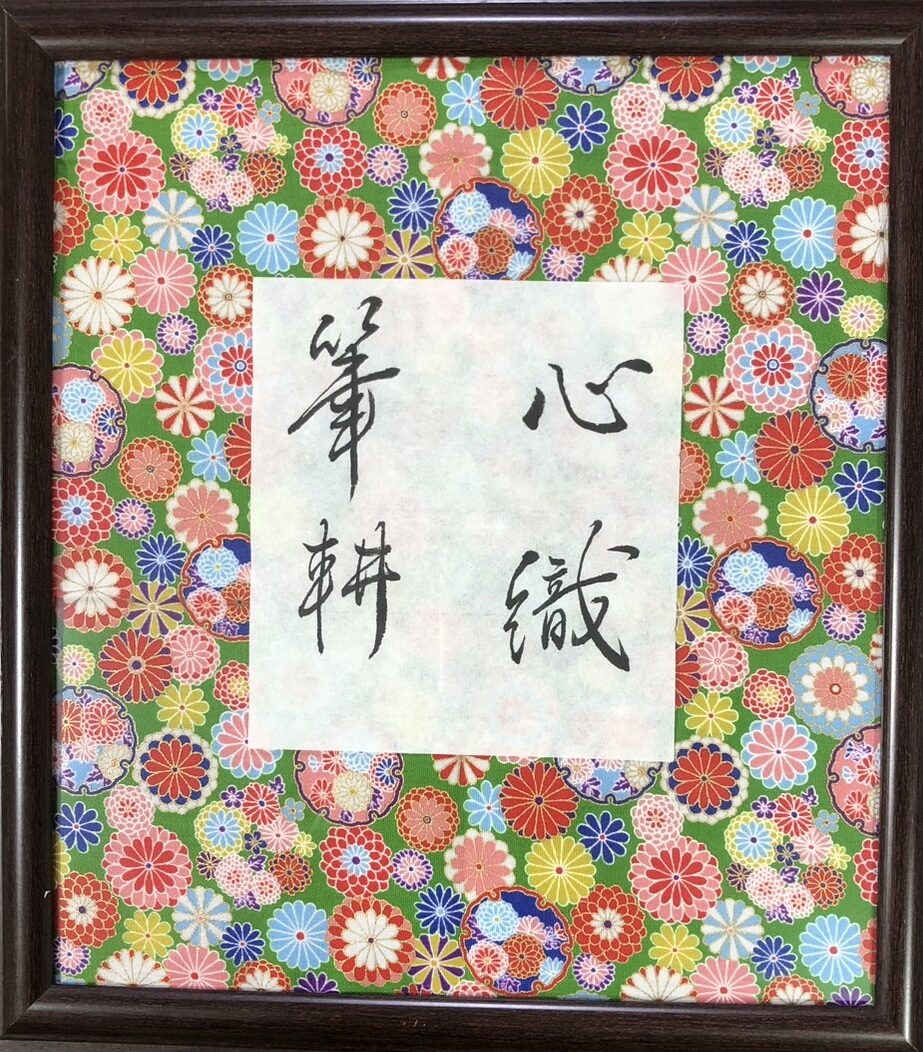 心織
筆耕